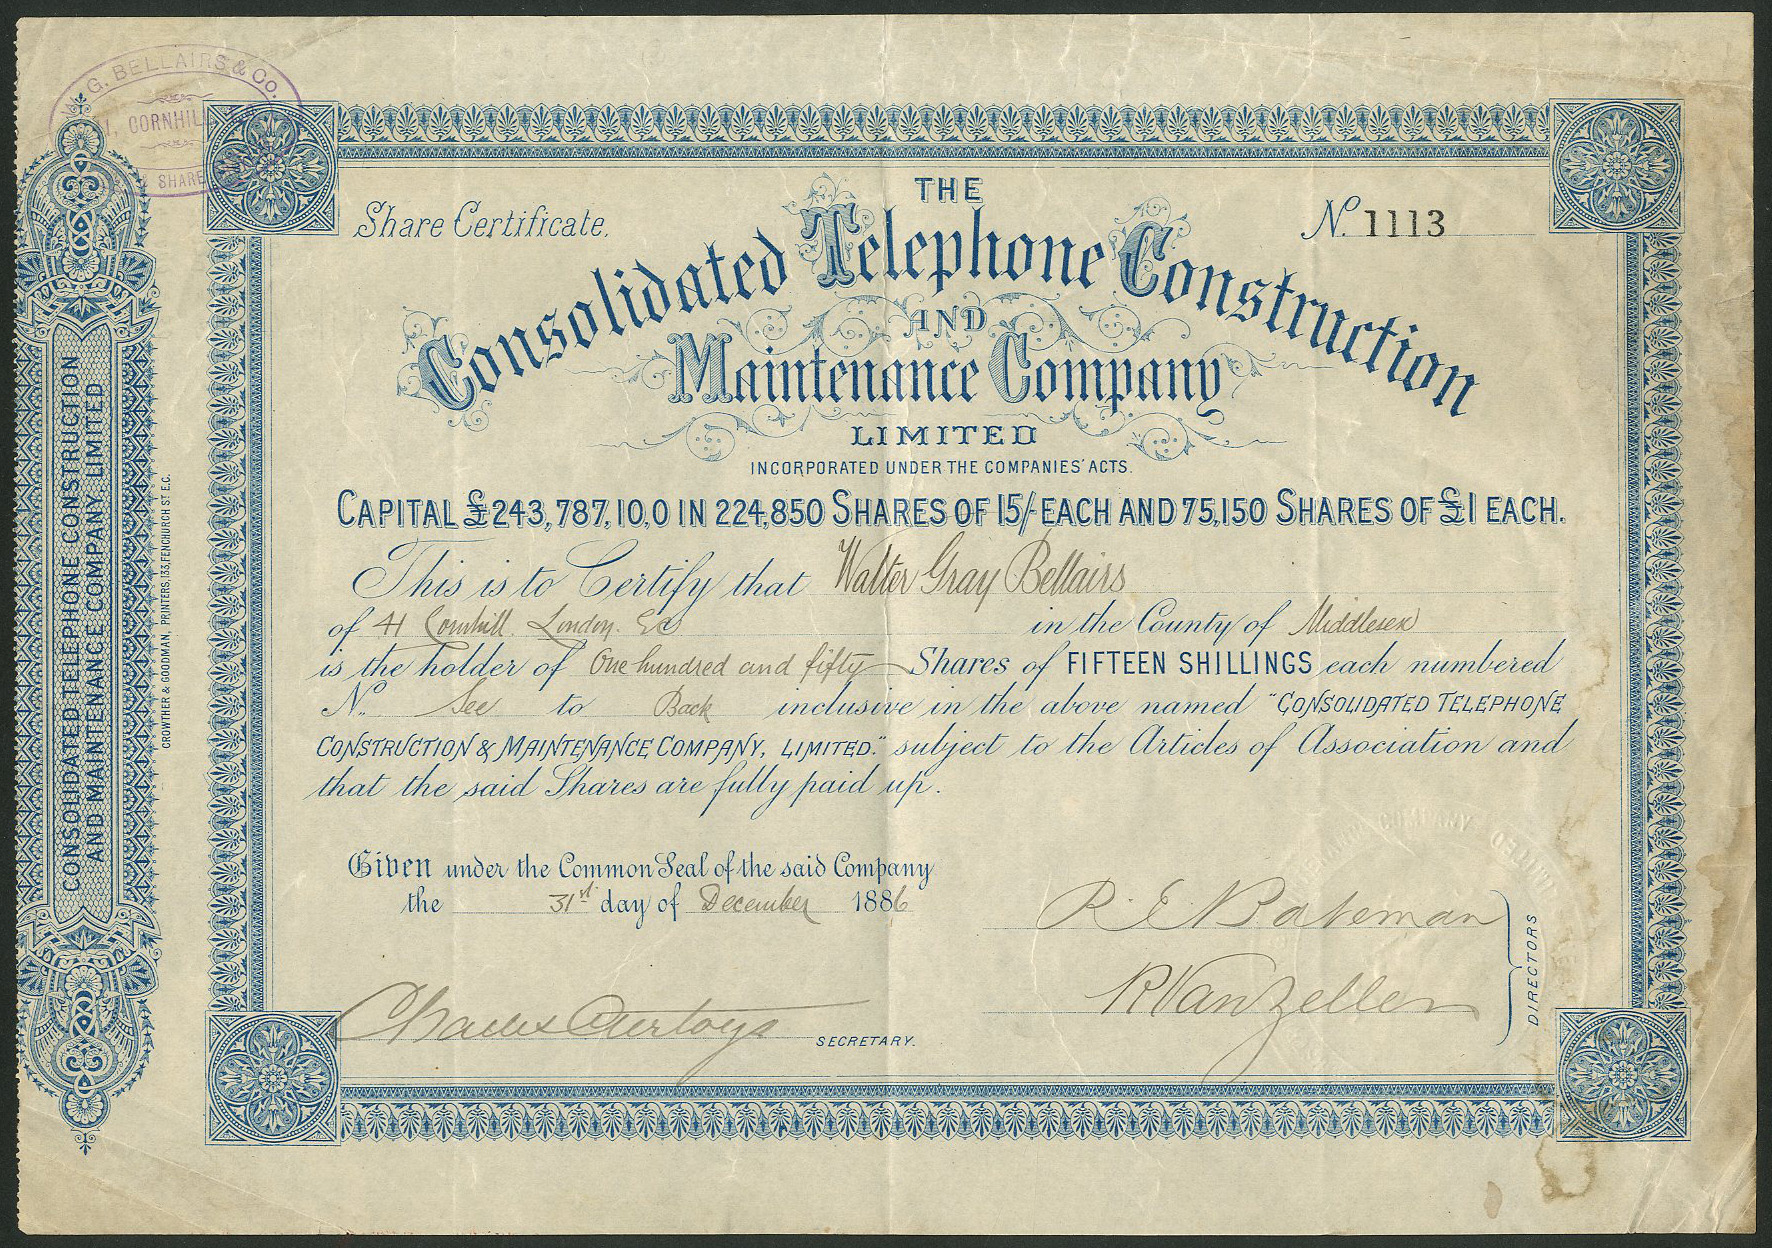 G. BELLAIRS & CO.
CORNHILL
SHARE
Share Certificate.
N. 1113
THE
Consolidated Telephone Construction
AND
Maintenance Company
LIMITED
INCORPORATED UNDER THE COMPANIES' ACTS.
CAPITAL £243,787,10,0 IN 224,850 SHARES OF 15/- EACH AND 75,150 SHARES OF £1 EACH.
This is to Certify that Walter Gray Bellairs
of 41 Cornhill London. EC in the County of Middlesex
is the holder of One hundred and fifty Shares of FIFTEEN SHILLINGS each numbered
No. See to Back inclusive in the above named "CONSOLIDATED TELEPHONE
CONSTRUCTION & MAINTENANCE COMPANY, LIMITED." subject to the Articles of Association and
that the said Shares are fully paid up.
Given under the Common Seal of the said Company
the 31st day of December 1886
R. E. Bateman
R Van Zeller
DIRECTORS
Charles
SECRETARY.
CONSOLIDATED TELEPHONE CONSTRUCTION
AND MAINTENANCE COMPANY LIMITED
CROWTHER & GOODMAN, PRINTERS, 133, FENCHURCH ST E.C.
COMPANY LIMITED